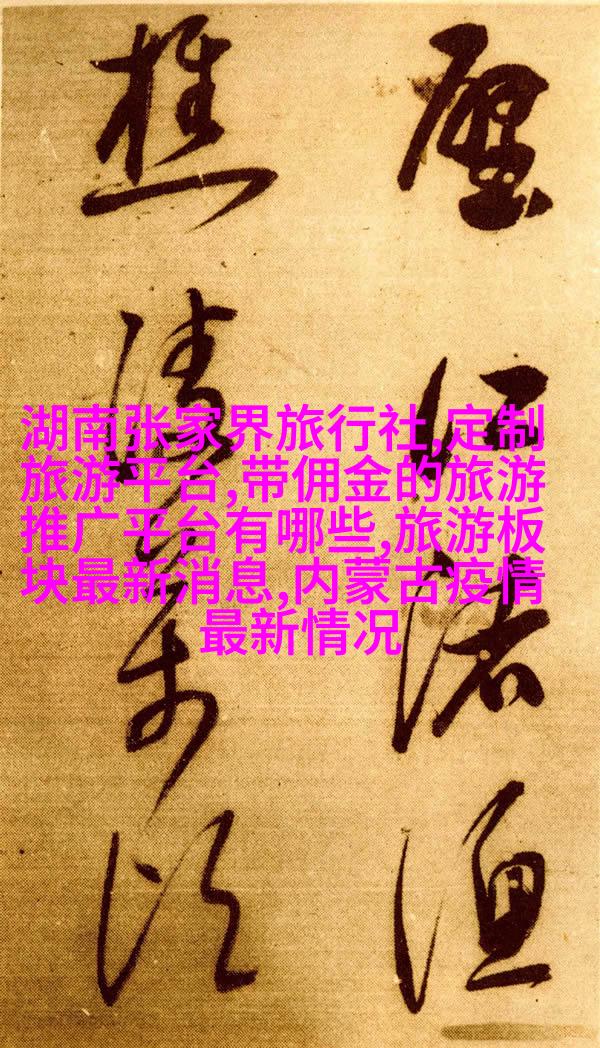 江渚漁
樵
湖南张家界旅行社,定制
旅游平台,带佣金的旅游
推广平台有哪些,旅游板
块最新消息,内蒙古疫情
最新情况